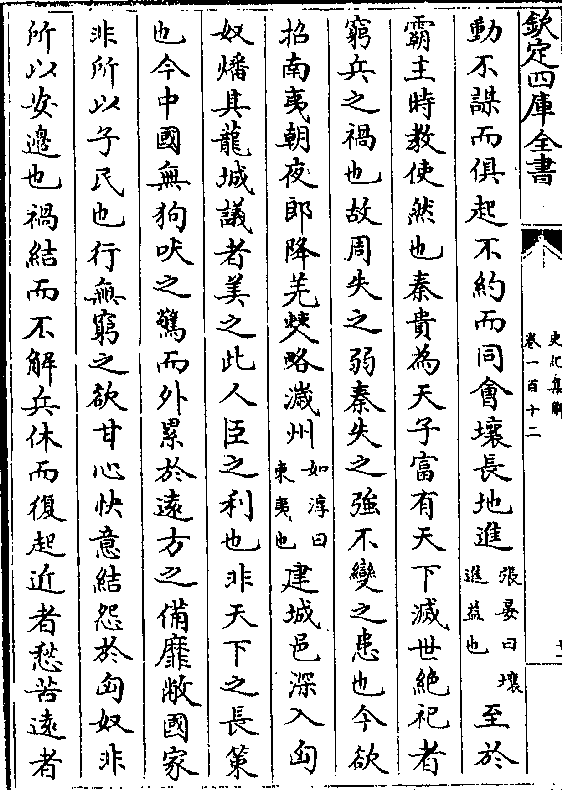 欽定四庫全書
史記集解
卷一百十二
動不謀而俱起不約而同會壤長地進張晏曰壤進益也至於
霸主時教使然也秦貴為天子富有天下滅世絕祀者
窮兵之禍也故周失之弱秦失之強不變之患也今欲
招南夷朝夜郎降羌僰略濊州如淳曰東夷也建城邑深入匈
奴燔其龍城議者美之此人臣之利也非天下之長策
也今中國無狗吠之驚而外累於遠方之備靡敝國家
非所以子民也行無窮之欲甘心快意結怨於匈奴非
所以安邊也禍結而不解兵休而復起近者愁苦遠者